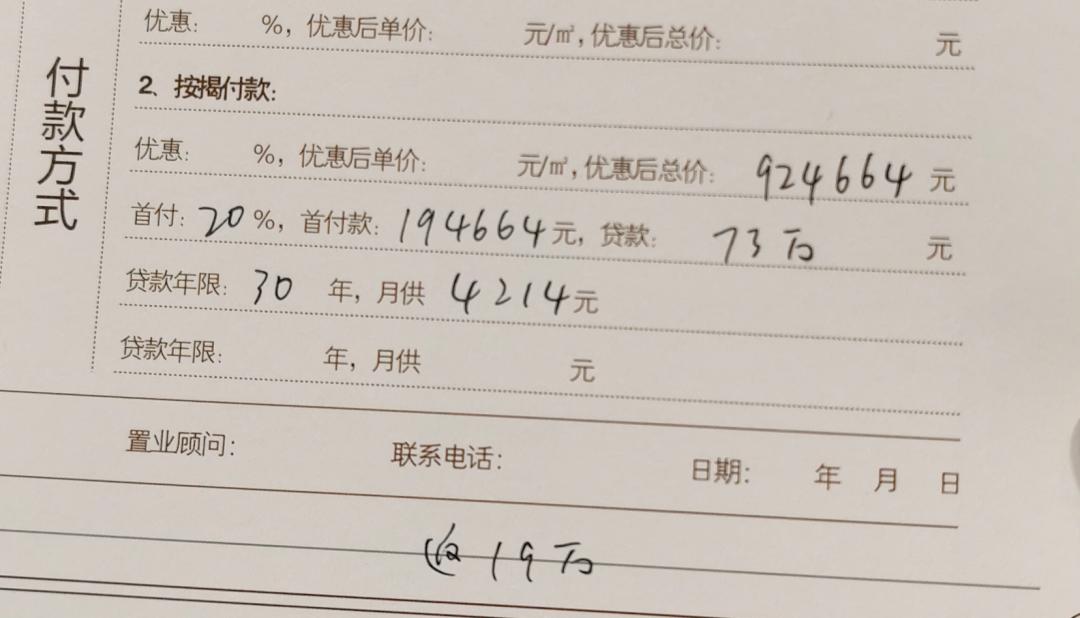 付款方式
优惠: %，优惠后单价: 元/㎡，优惠后总价: 元
2、按揭付款:
优惠: %，优惠后单价: 元/㎡，优惠后总价: 924664 元
首付: 20 %，首付款: 194664 元，贷款: 73万 元
贷款年限: 30 年，月供 4214 元
贷款年限: 年，月供 元
置业顾问: 联系电话: 日期: 年 月 日
19万